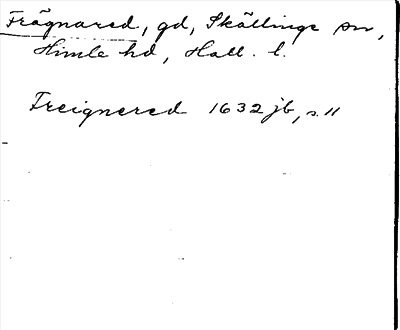 Frägnared, gd, Skällinge sn,
Himle hd, Hall. l.
Freignered 1632 jb, s. 11